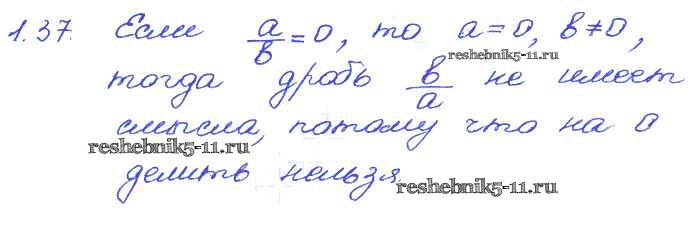 1.37. Если a/b = 0, то a = 0, b ≠ 0,
reshebnik5-11.ru
тогда дробь b/a не имеет
смысла, потому что на 0
reshebnik5-11.ru
делить нельзя.
reshebnik5-11.ru